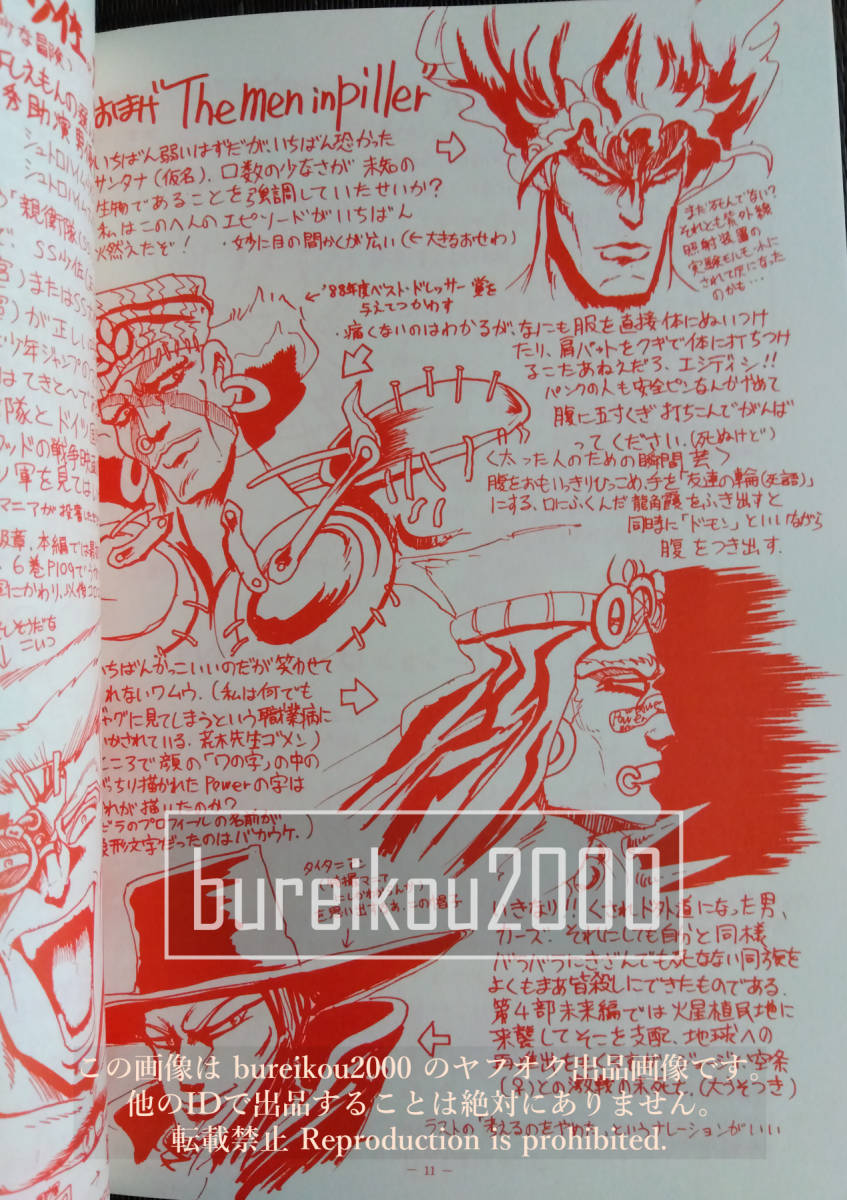 おまけ"The men in piller"
いちばん弱いはずだが、いちばん恐かった
サンタナ(仮名)、口数の少なさが 未知の
生物であることを強調していたせいか?
私はこのへんのエピソードがいちばん
燃えたぞ! ・妙に目の間かくが広い(←大きなおせわ)
まだ死んでない?
それとも紫外線
照射装置の
実験モルモットに
されて灰になった
のかも…
'88年度ベスト・ドレッサー賞を
与えてつかわす
・痛くないのはわかるが、なにも服を直接体にぬいつけ
たり、肩パットをクギで体に打ちつけ
るこたあねえだろ、エシディシ!!
パンクの人も安全ピンなんかやめて
腹に五すくぎ打ちこんでがんば
ってください。(死ぬけど)
〈太った人のための瞬間芸〉
腹をおもいっきりひっこめ、手を「友達の輪(死語)」
にする、口にふくんだ龍角散をふき出すと
同時に「ドモン」といいながら
腹をつき出す.
いちばんかっこいいのだが笑わせて
くれないワムウ.(私は何でも
ギャグに見てしまうという職業病に
おかされている、荒木先生ゴメン)
ところで 顔の「ワの字」の中の
びっちり描かれたPowerの字は
だれが描いたのか?
のプロフィールの名前が
象形文字だったのはバカウケ.)
Power
bureikou2000
タイタニ
この帽子
いきなり くされド外道になった男、
カーズ. それにしても自分と同様
バラバラにきざんでも死なない同族を
よくもまあ皆殺しにできたものである.
第4部未来編では火星植民地に
来襲してそこを支配、地球への
空条
(♀)との激戦の末死亡.(大うそつき)
ラストの「考えるのをやめた」というナレーションがいい
この画像は bureikou2000 のヤフオク出品画像です。
他のIDで出品することは絶対にありません。
転載禁止 Reproduction is prohibited.
— 11 —
秀助演男優
シュトロハイム
シュトロハイム
「親衛隊(SS
SS少佐
またはSS
が正しい
少年ジャンプの
はてきとーで
部隊とドイツ国
ッドの戦争映画
軍を見ては
マニアが投書した
本編では最
6巻P109で
にかわり、以後
そうだな
こいつ